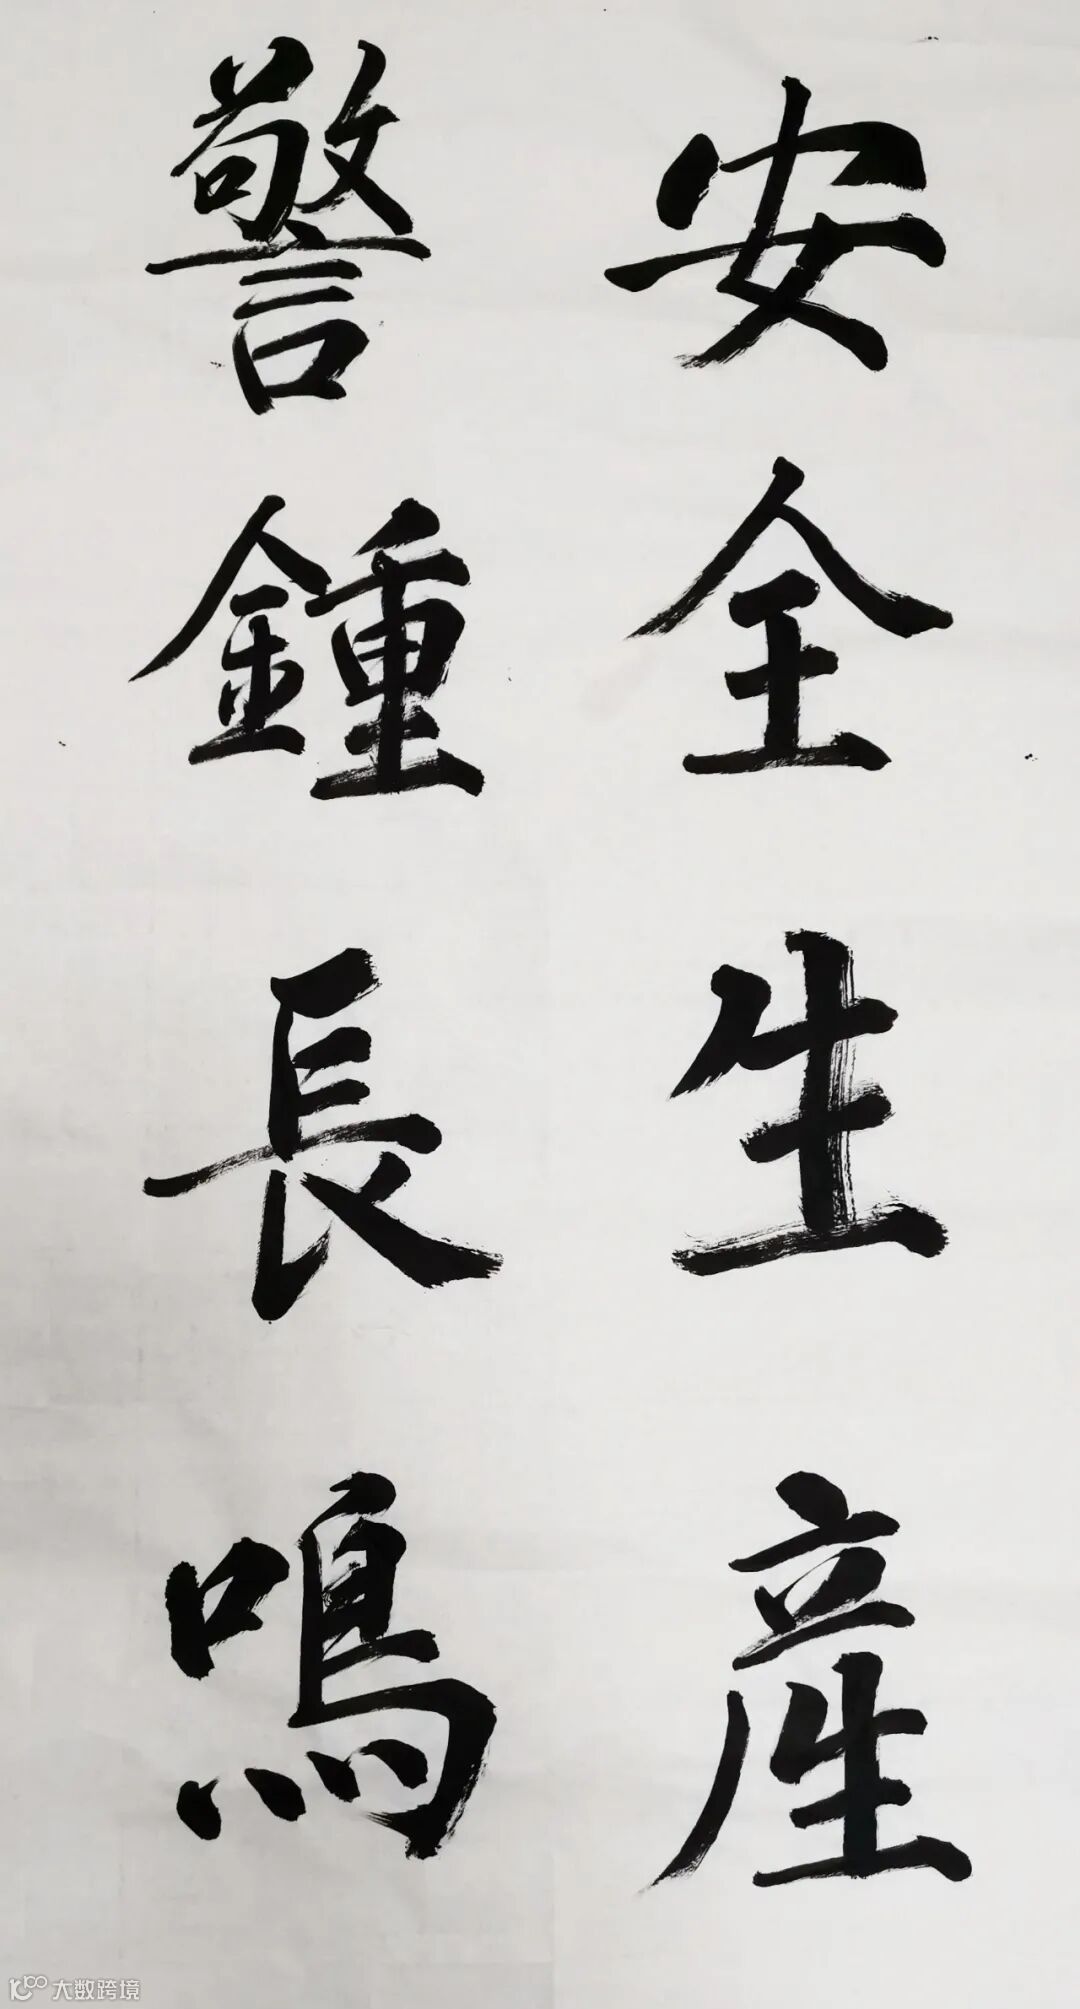 安全生產
警鍾長鳴
大数跨境